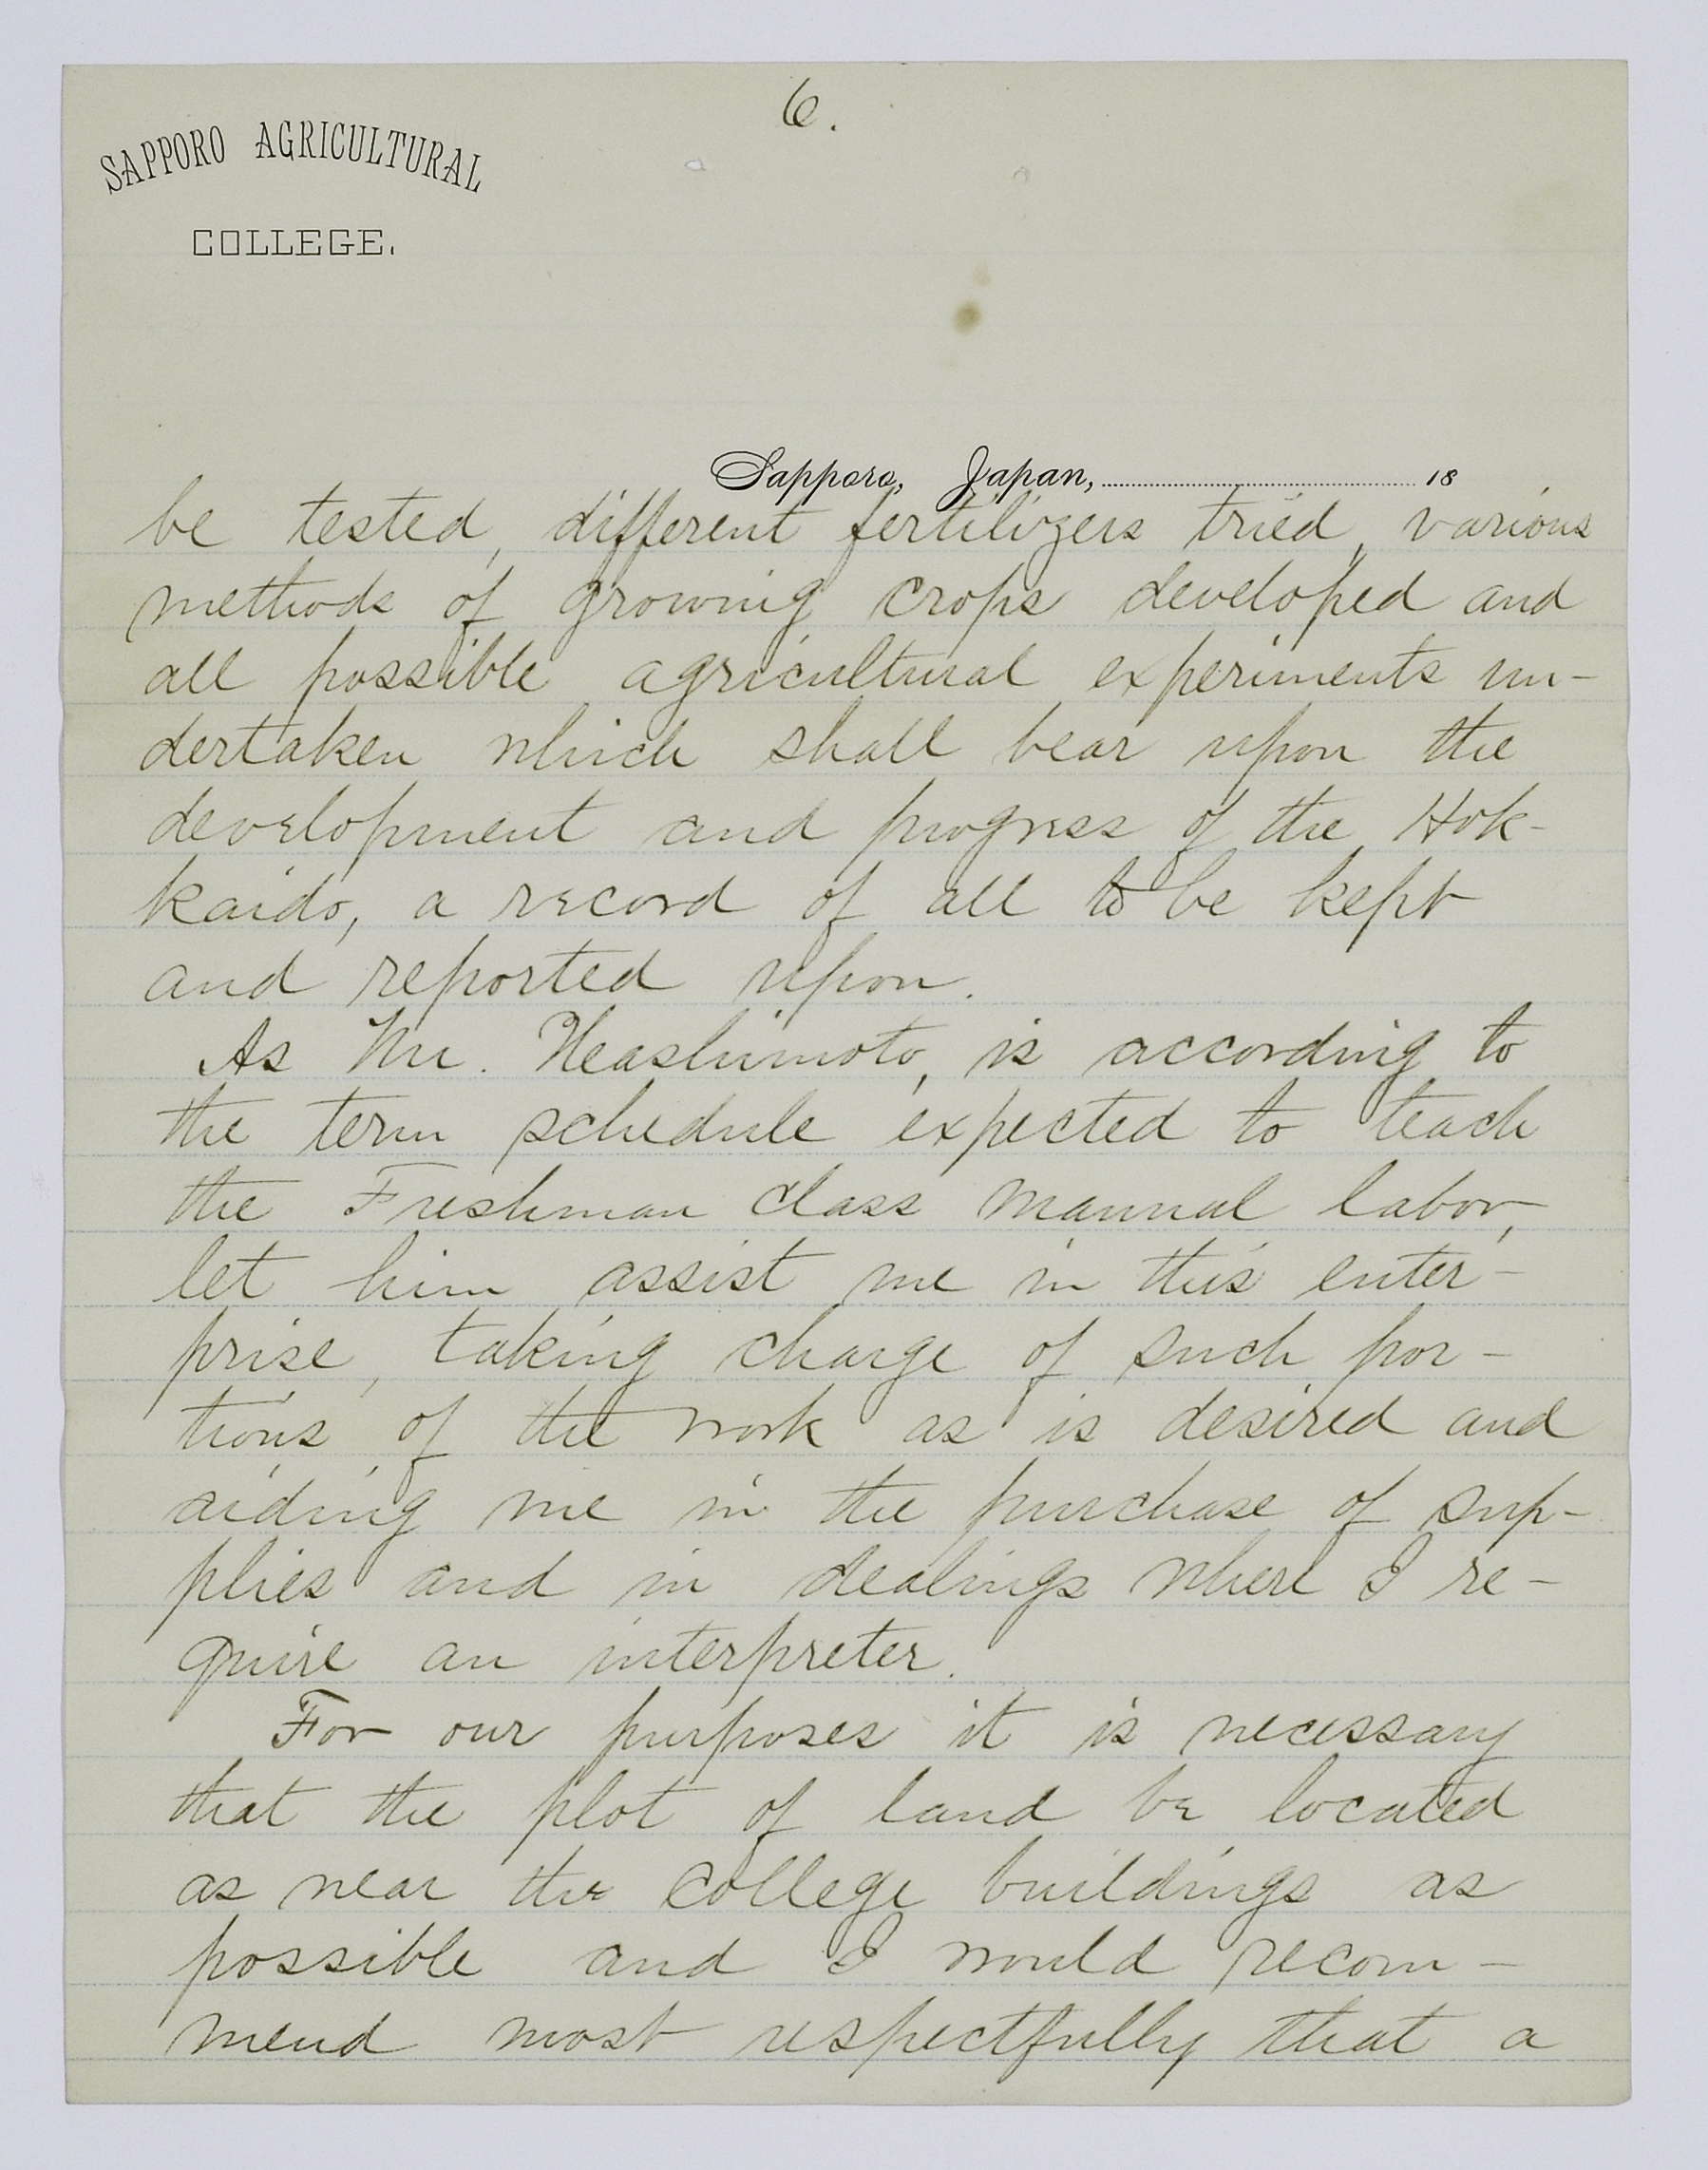 6.
SAPPORO AGRICULTURAL
COLLEGE.
Sapporo, Japan, 18
be tested, different fertilizers tried, various
methods of growing crops developed and
all possible agricultural experiments un-
dertaken which shall bear upon the
development and progress of the Hok-
kaido, a record of all to be kept
and reported upon.
As Mr. Heashimoto, is according to
the term schedule expected to teach
the Freshman class manual labor,
let him assist me in this enter-
prise, taking charge of such por-
tions of the work as is desired and
aiding me in the purchase of sup-
plies and in dealings where I re-
quire an interpreter.
For our purposes it is necessary
that the plot of land be located
as near the college buildings as
possible and I would recom-
mend most respectfully that a